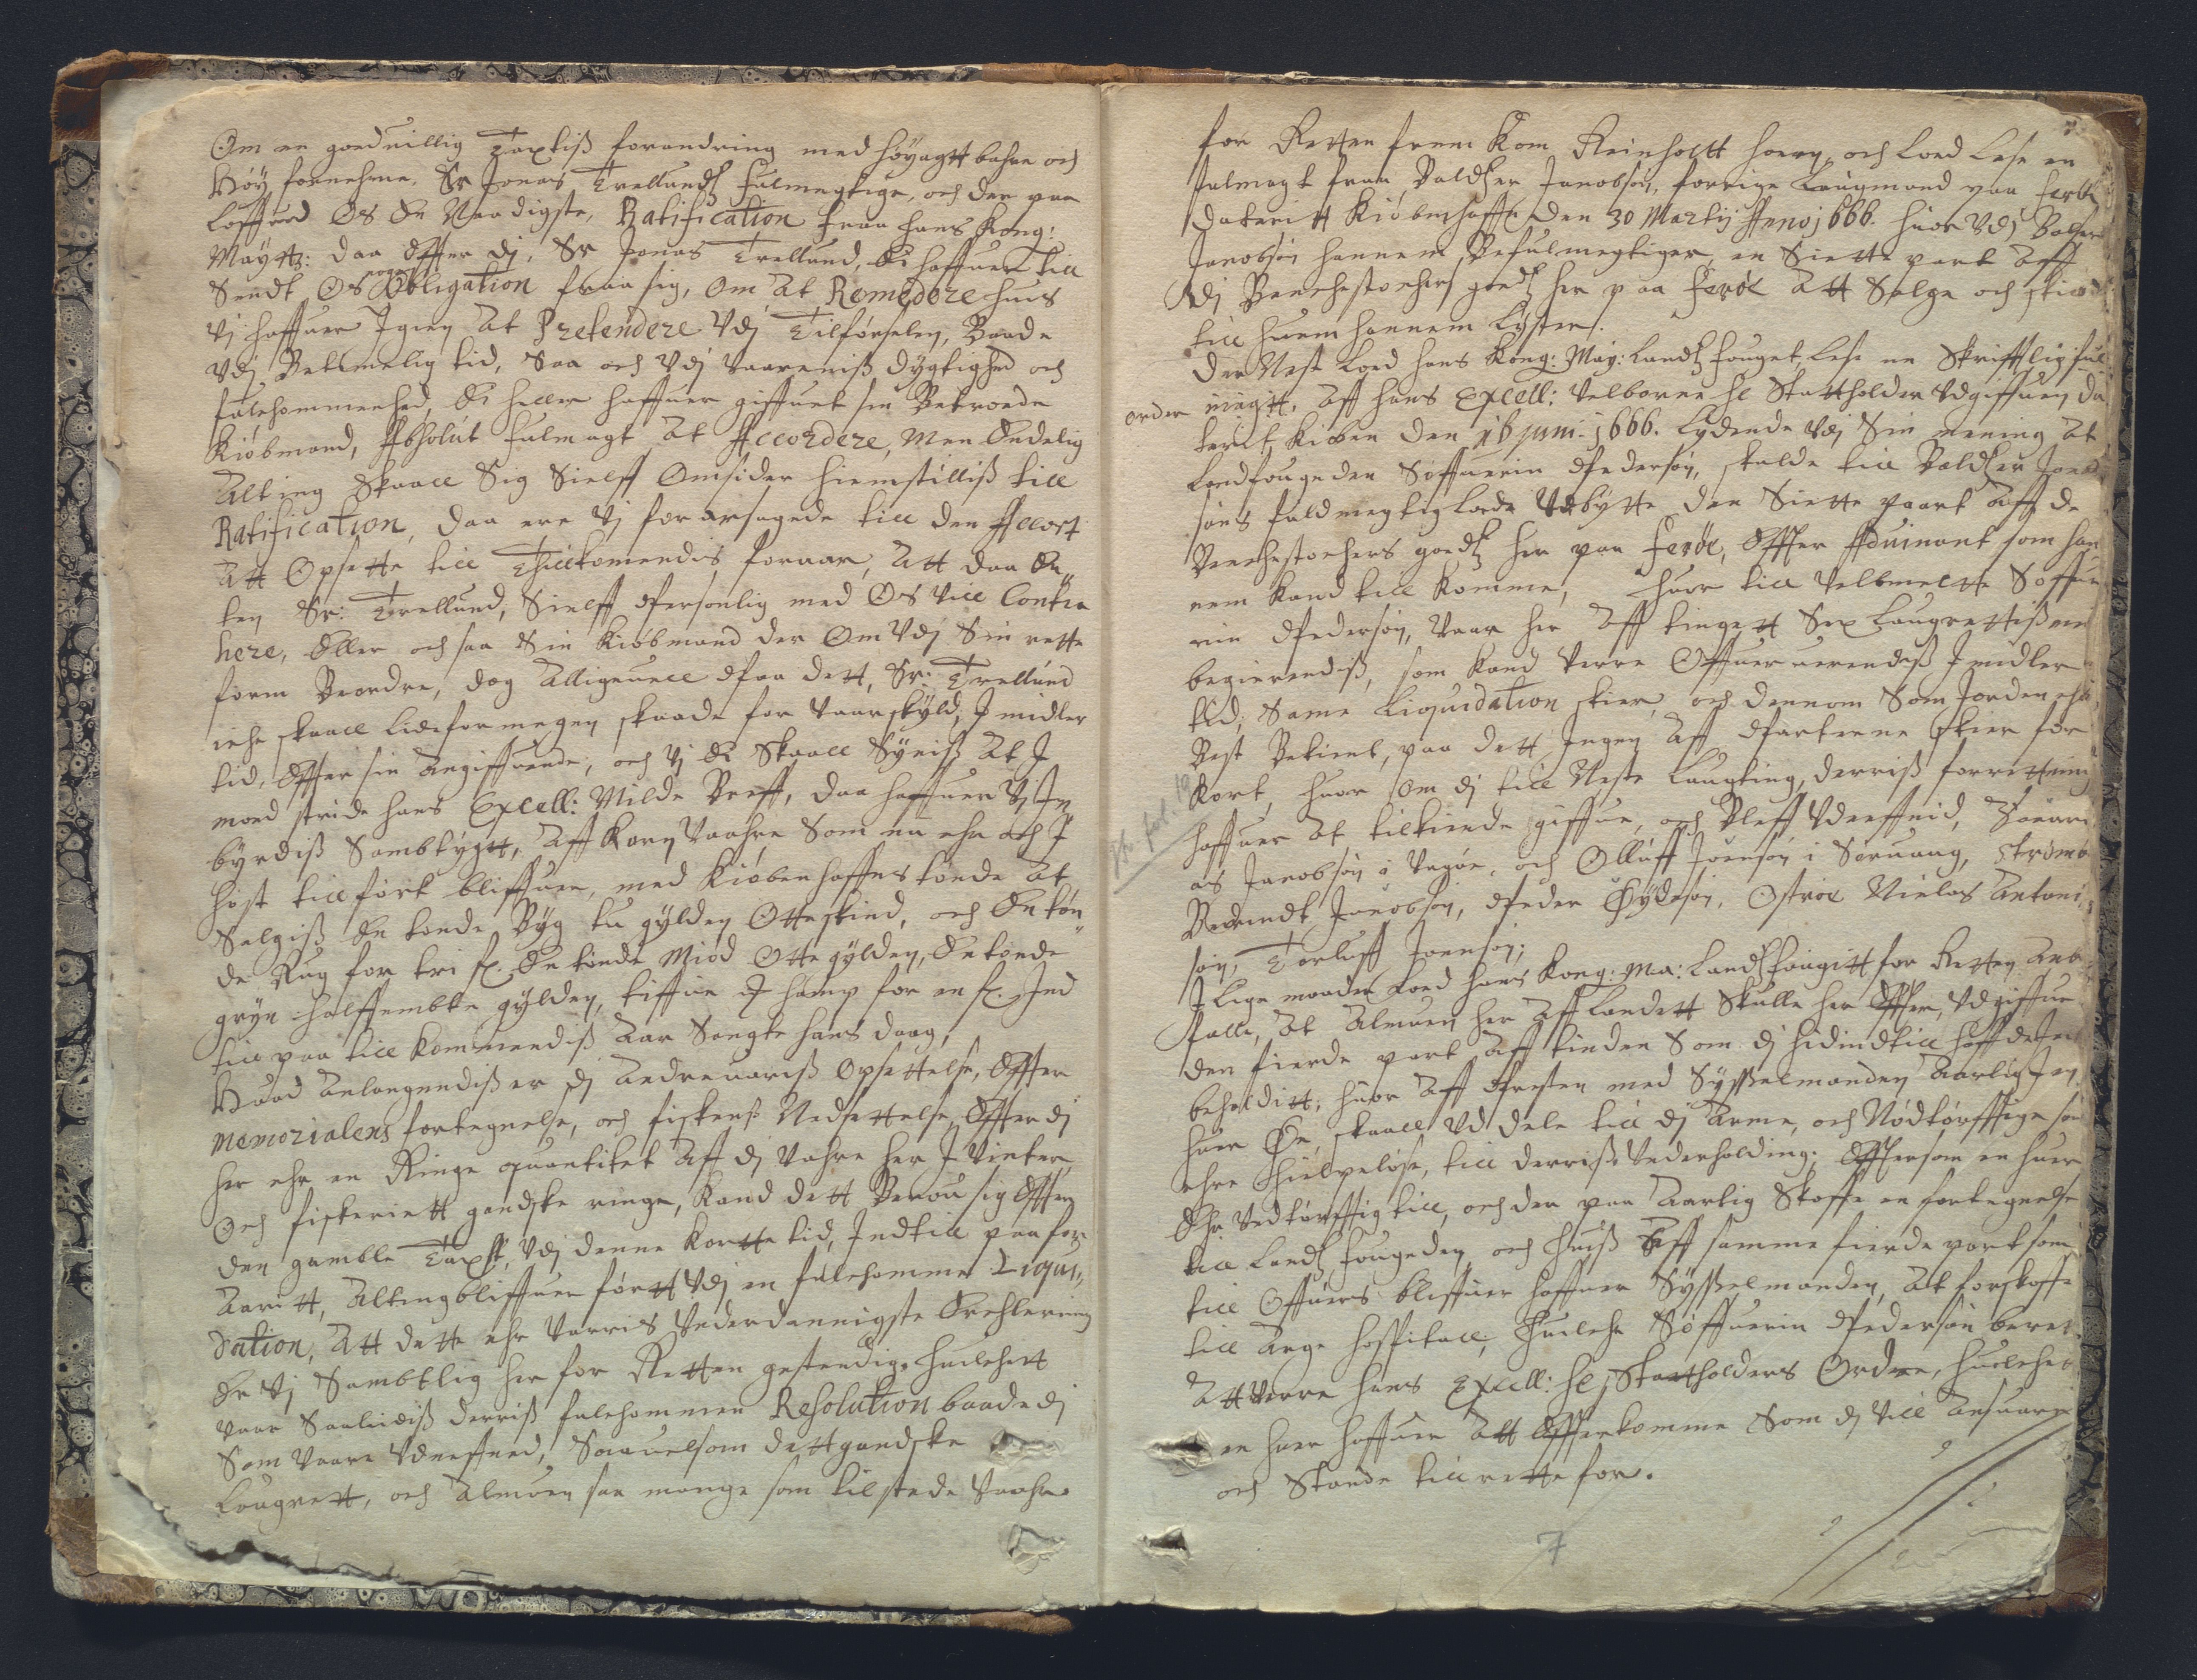 Om en goedvillig Taxtiß forandring med høyagtt bahre och
Høy fornehme, Sr Jonas Trellundß fulmegtige, och der paa
Loffued Os En Naadigste, Ratification fraa hans Kong:
Maytt: daa Effter dj, Sr Jonas Trellund, Ei haffuer till
Sendt Os nogen Obligation fraa sig, Om at Remedere huis
Vj haffuer Igien at Pretendere Vdj Tilførselen, Baade
Vdj Betimelig tid, Saa och Vdj Vaareniß dygtighed och
fulchommenhed, Ei heller haffuer giffuet sin Betroede
Kiøbmand, Absolut fulmagt at Accordere, Men Endelig
Alting Skaall Sig Sielff Omsider hiemstilliß till
Ratification, daa ere Vj forarsagede till den Accort
Att Opsette till Tillkomendis foraar, Att daa En„
ten Sr: Trellund, Sielff Personlig med Os Vill Contra
here, Eller och saa Sin Kiøbmand der Om Vdj Sin rette
form Beordre, dog alligeuell Paa dett, Sr: Trellund
iche skaall Lide formegen skaade for Vaar skyld, I midler
tid, Effter sin angiffuende, och Vj Ei Skaall Syniß at I
moed stride hans Excell: Milde Breff, daa haffuer Vj In
byrdiß Sambtygtt, Aff Korn Vaahre Som nu ehr och I
høst tillført bliffuer, med Kiøbenhaffns tønde at
Selgiß En tønde Byg tu gylden Otte skind, och En tøn„
de Rug for tri gl. En tønde Miød Otte gylden, En tønde
gryn halffembte gylden, tiffue # hamp for en gl. Ind
till paa till kommendiß Aar Sangte Hans daag,
Huad Anlangendiß er dj andre uariß Opsettelse, Effter
Memorialens fortegnelse, och fiskens Nedsettelse, Effter dj
her ehr en Ringe quantitet aff dj Vahre her I Vinter,
Och fiskeriett gandske ringe, Kand dett Berou sig Effter
den gamble Taxst, Vdj denne Kortte tid, Indtill paa for
Aaritt, Alting bliffuer førtt Vdj en fulchommen Liqui„
dation, Att dette ehr Varris Vnderdannigste Erchlering
Er Vj Sambtlig her for Retten gestendig. huilchett
Vaar Saaledis derriß fulchommen Resolution baade dj
Som Vaare Vdneffned, Saauelsom dett gandske
Laugrett, och Almuen saa mange som tilstede Vaahre

for Retten frem Kom Reinholtt Horn, och Loed Lese en
fulmagt fraa Baldßer Jacobsøn, forrige Laugmand paa ferøe
dateritt Kiøbenhaffn den 30 Martij Anno 1666. huor Vdj Balßer
Jacobsøn hannem Befulmegtiger, en Siette part Aff
dj Benchestochers godß her paa Ferøe att Selge och skiøde
till huem hannem Lyster.
Der Nest Loed hans Kong: May: Landß fouget, Lese en Skrifftlig ful
order megtt, aff hans Excell: Velborne Hl Stattholder Vdgiffuen da
terit Kioben den 16 juni. 1666. Lydende Vdj Sin mening at
Landfougeden Søffuerin Pedersøn, skulde till Baldßer Jacob
søns fuldmegtig Lade Vdbytte den Siette paart aff de
Benchestochers goedß her paa Ferøe, Effter Aduinant som han
nem Kand till Komme, huor till Velbmelte Søffue
rin Pedersøn, Vaar her aff tingett Sex Laugrettißmend
begierendiß, som Kand Verre Offueruerendiß I midler
tid, Same Liquidation skier, och dennom Som Jorden ehr
Best Bekient, paa dett Ingen aff Parterne skeer for
Kort, huor Om dj till Neste Laugting, derriß forrettning
haffuer at tilkiende giffue, och Bleff Vdneffnid, Joenn
as Jacobsøn i Vagøe, och Olluff Joensøn i Soruaag, Strømø
Berendt Jacobsøn, Peder Øydesøn, Ostrøe Nielas Antoni
søn, Torluff Joensøn;
I Lige maader Loed hans Kong: Ma: Landß fougitt for Retten anb
falle, at almuen her aff Landett Skulle her Effter, Vdgiffue
den fierde part aff tienden Som dj hidindtill haffde Inde
beholditt, huor aff Presten med Sysselmanden Aarlig I en
huer Øe, skaall Vd dele till dj arme, och Nødtørfftige som
ehre hielpeløse, till derriß Vnderholding, Effter som en huer
Ehr Nødtørfftig till, och der paa Aarlig Skaffe en fortegnelse
till Landß fougeden och huiß aff samme fierde part som
till Offuers bliffuer haffuer Sysselmanden, at forskaffe
till Arge hospitall, huilche Søffuerin Pedersøn beret
att Verre hans Excell: Hl Statholders Ordre, huilchet
en huer haffuer att Effterkomme Som dj Vill ansuare
och Stande till rette for.
7